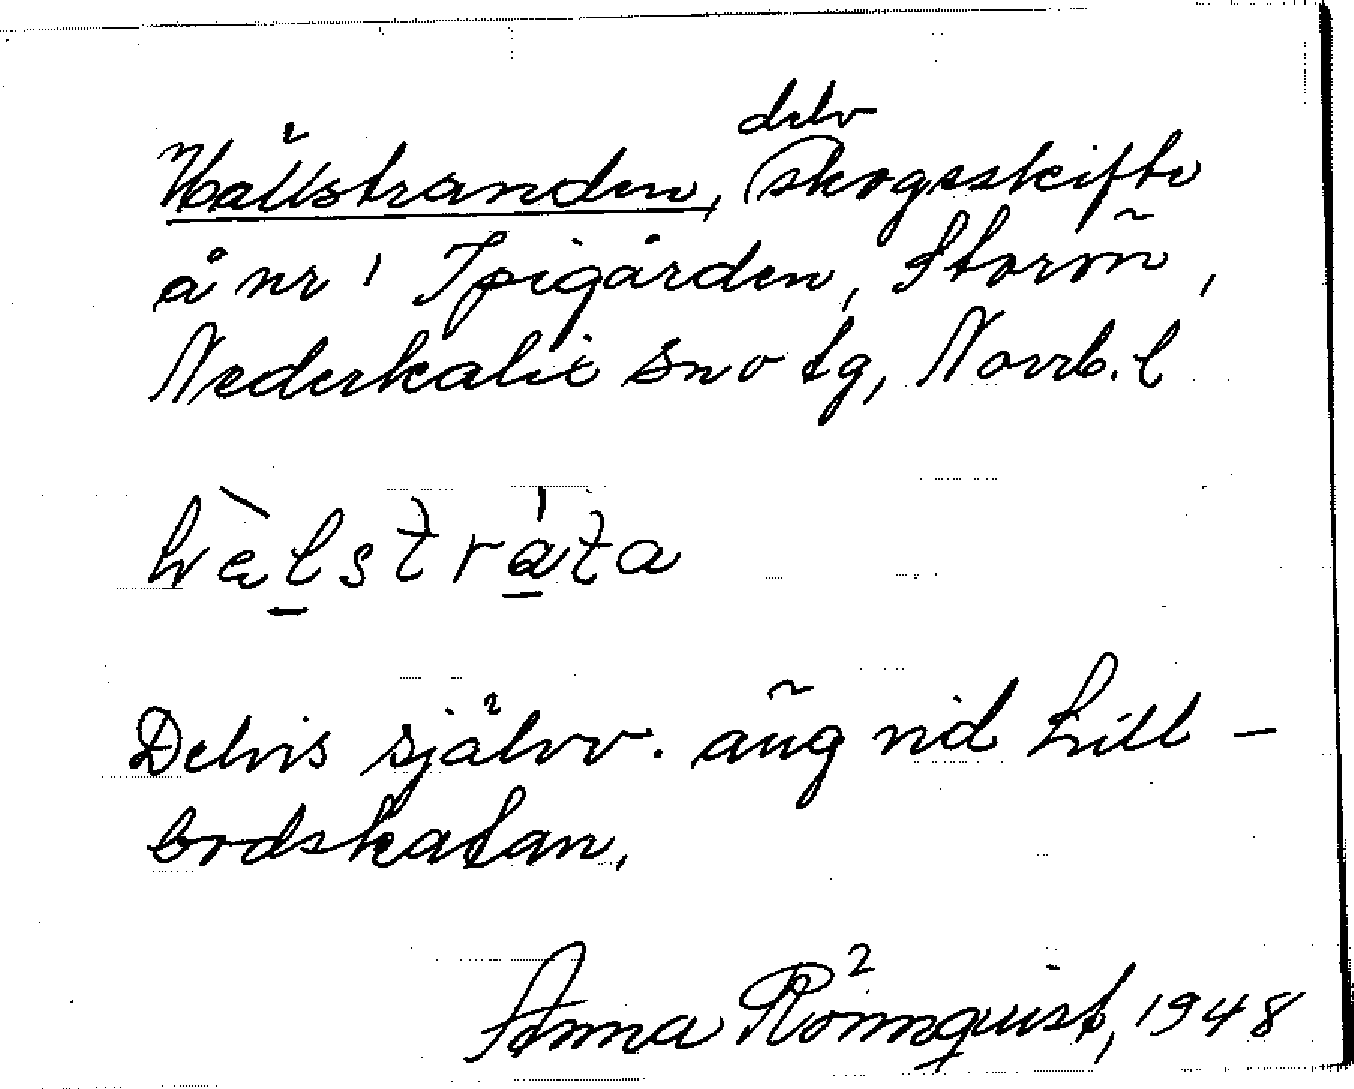 delv
Hällstranden, skogsskifte
å nr 1 Spigården, Storön,
Nederkalix sn o tg, Norrb. l
hàlstráta
Delvis självv. äng vid Lill-
bodskatan.
Anna Rönnquist, 1948